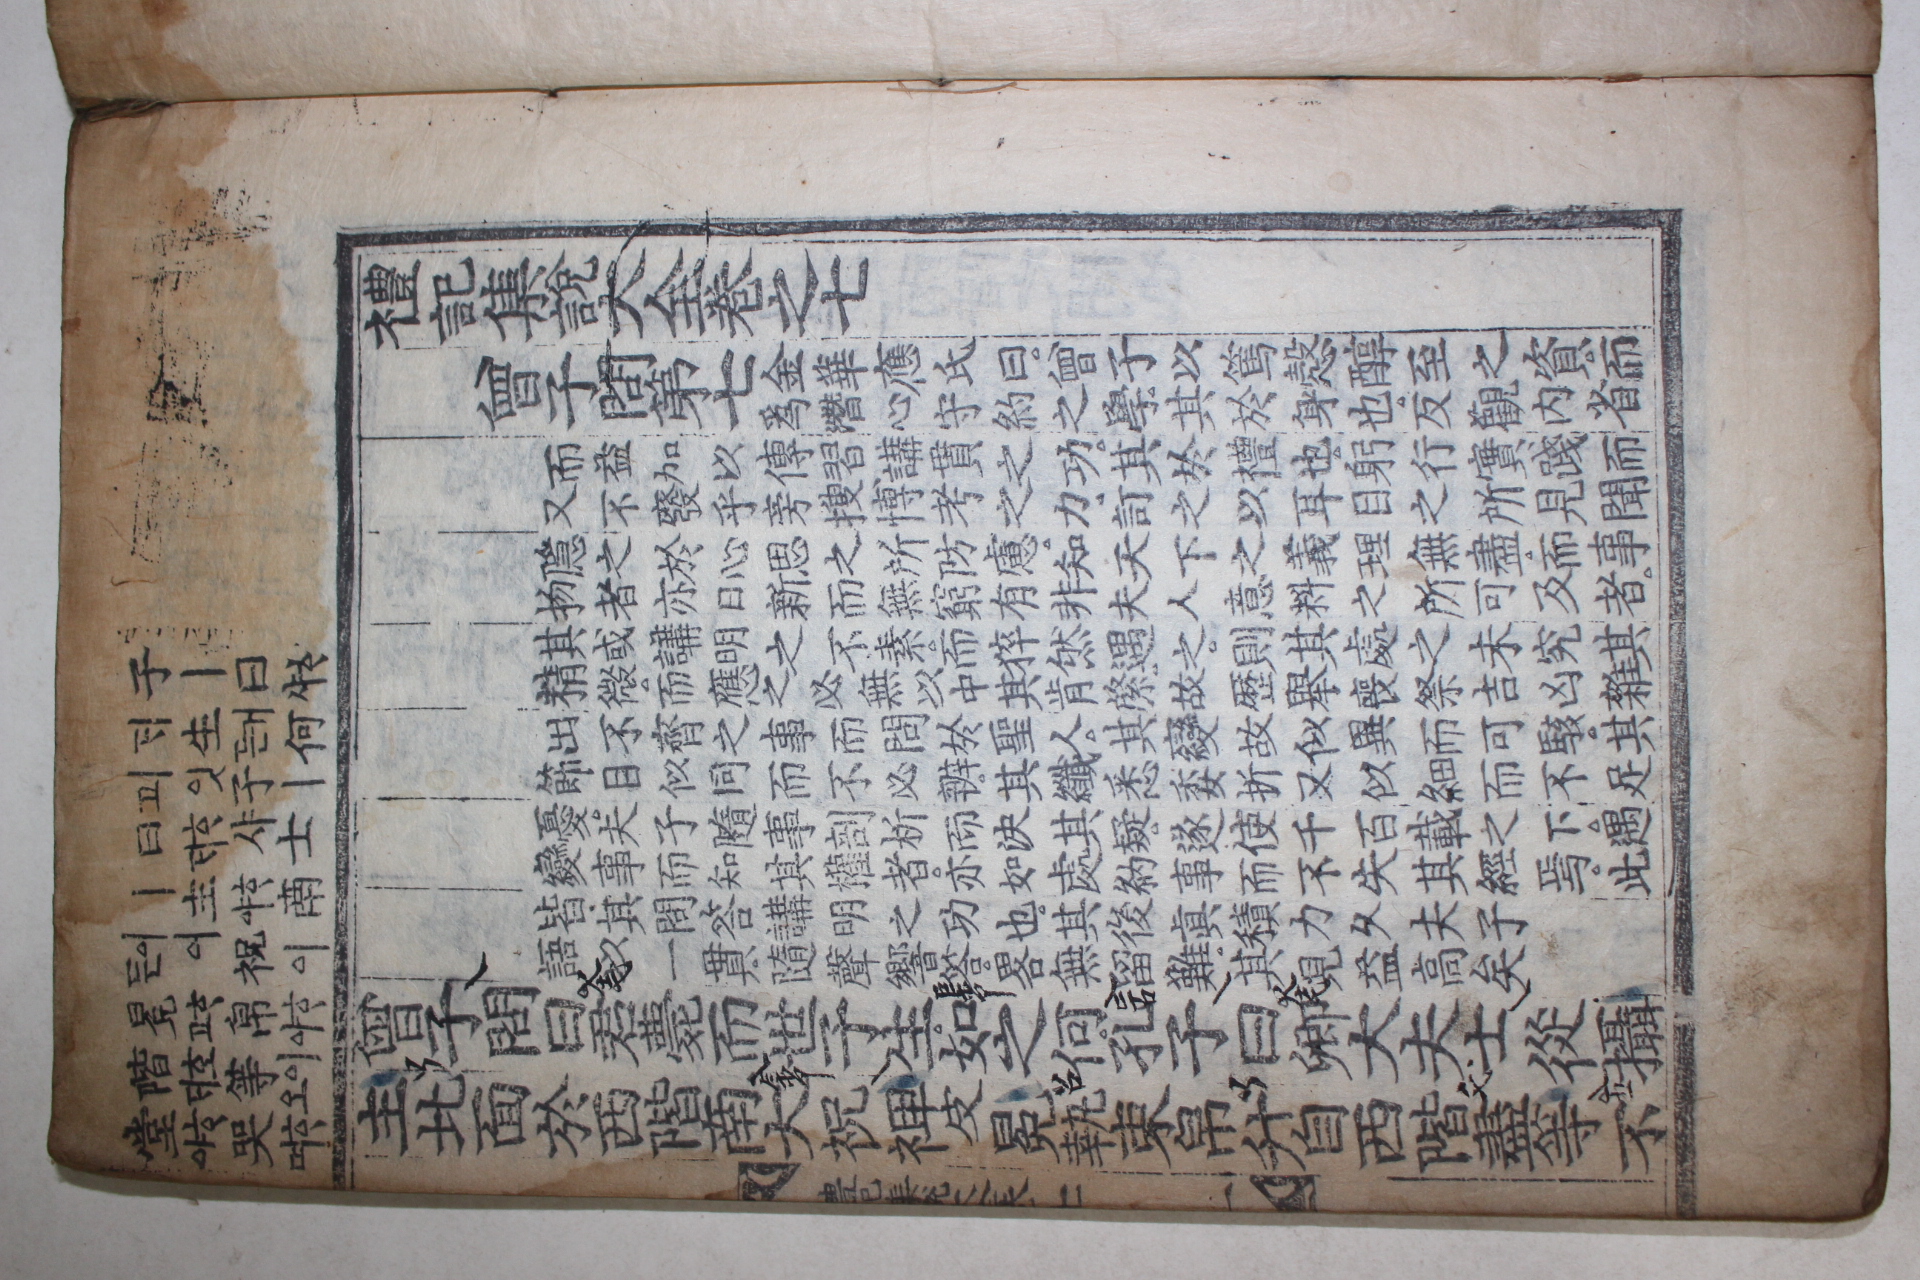 子ㅣ曰
生든대何
괴잇子ㅣ
曰샤士
ㅣ主南
든이여祝이
冕帛
階等
堂哭
禮記集說大全卷之七
曾子問第七
金華應氏曰。曾子以篤慤醇至之資。而
爲潛心守約之學。其於身也。反觀內省
而益加以傳習講貫之功。其於禮也。躬行實踐而
又不廢乎旁搜博考之力。訂之以耳目之所見聞
隱之於心。思之所防慮。知天下之義理無盡。而事
扬者亦日新而無窮有非夫人意料之所可及者。
其或講明之不素。而猝然遇之。則其處之未究其
精微。而應之必無以中其肯綮。故歷舉喪祭吉凶雜
出不齊之事而問於聖人。其變故似異而可駭。其
節目似同而不必辨。其纖悉委折又似細而不足
憂。夫子隨事剖析而決其疑。遂使千百載之下。遇
變事而知其權者。亦如處納事而不失其經焉。此
皆其問答講明之功也。其後眞積力久夫子
語以一貫。隨聲響答。畧無留難。其見益高矣
曾子問曰君薨而世子生。如之何。孔子曰卿大夫士從攝
主北面於西階南大祝裨皮冕執束帛升自西階盡等不